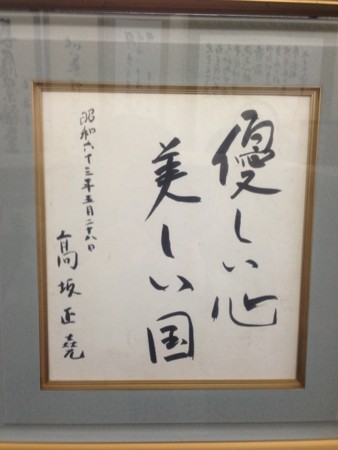 優しい心
美しい国
昭和六十三年五月二十八日
髙坂正堯